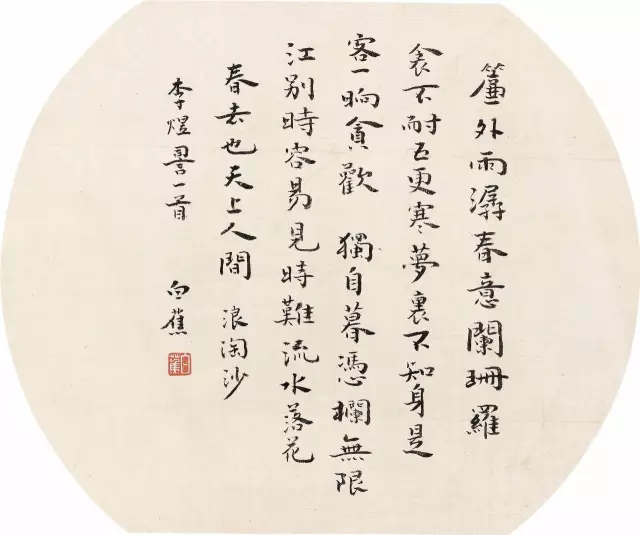 簾外雨潺春意闌珊羅
衾不耐五更寒夢裏不知身是
客一晌貪歡 獨自暮憑欄無限
江别時容易見時難流水落花
春去也天上人間 浪淘沙
李煜䛐一首 白蕉
白蕉